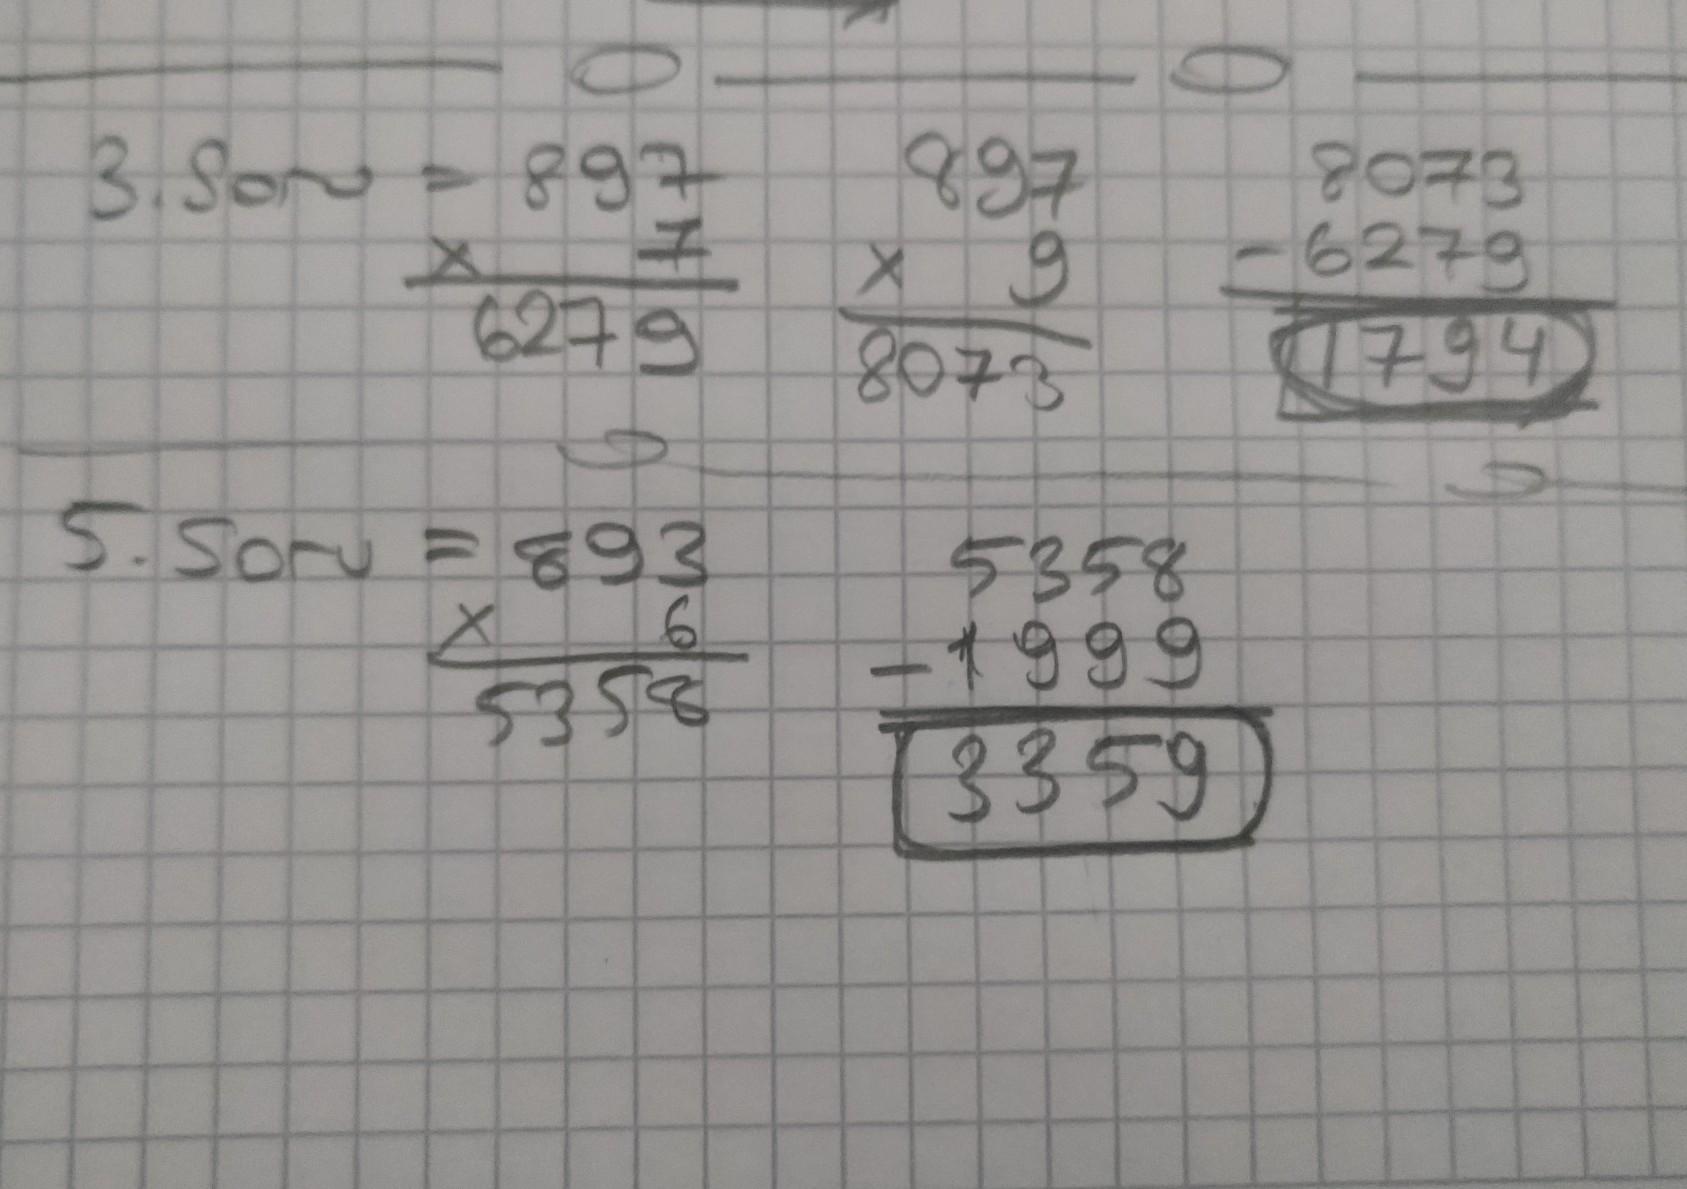 3. Soru = 897 897 8073
x 7 x 9 - 6279
6279 8073 1794
5. Soru = 893 5358
x 6 - 1999
5358 3359